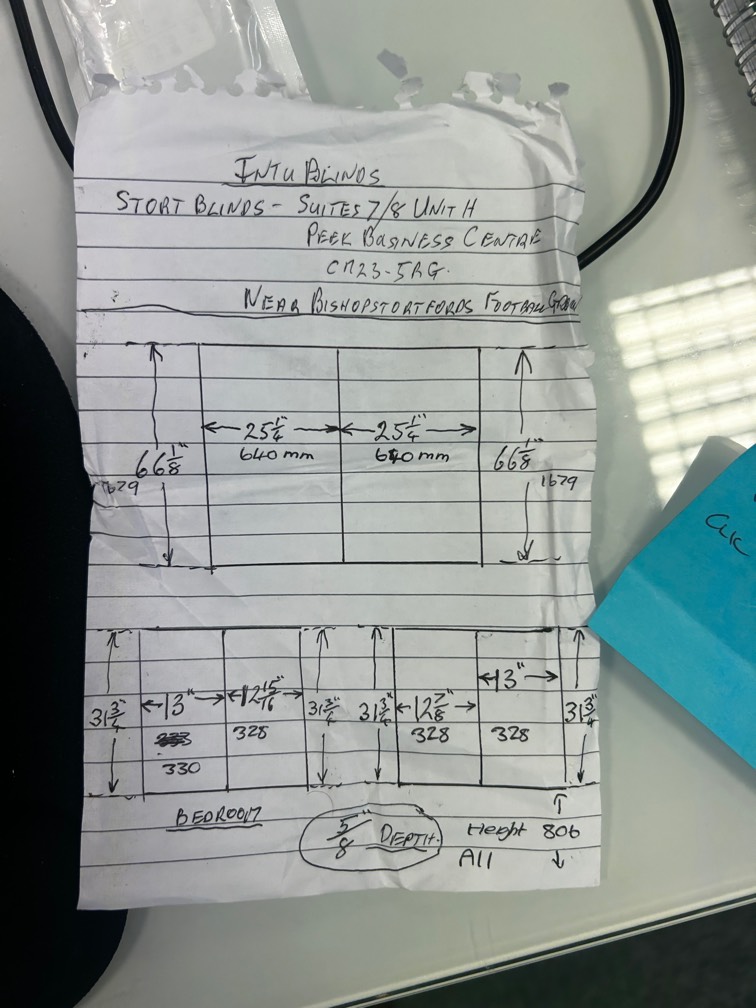 INTU BLINDS
STORT BLINDS - SUITES 7/8 UNIT H
PEEK BUSINESS CENTRE
CM23-5RG.
NEAR BISHOPSTORTFORDS FOOTBALL GROUN
25 1/4" 25 1/4"
640 mm 640 mm
66 1/8" 66 1/8"
1679 1679
13" 12 15/16" 12 7/8" 13"
31 3/4" 31 3/4" 31 3/4" 31 3/4"
328 328 328
330
BEDROOM
5/8" DEPTH.
Height 806
All